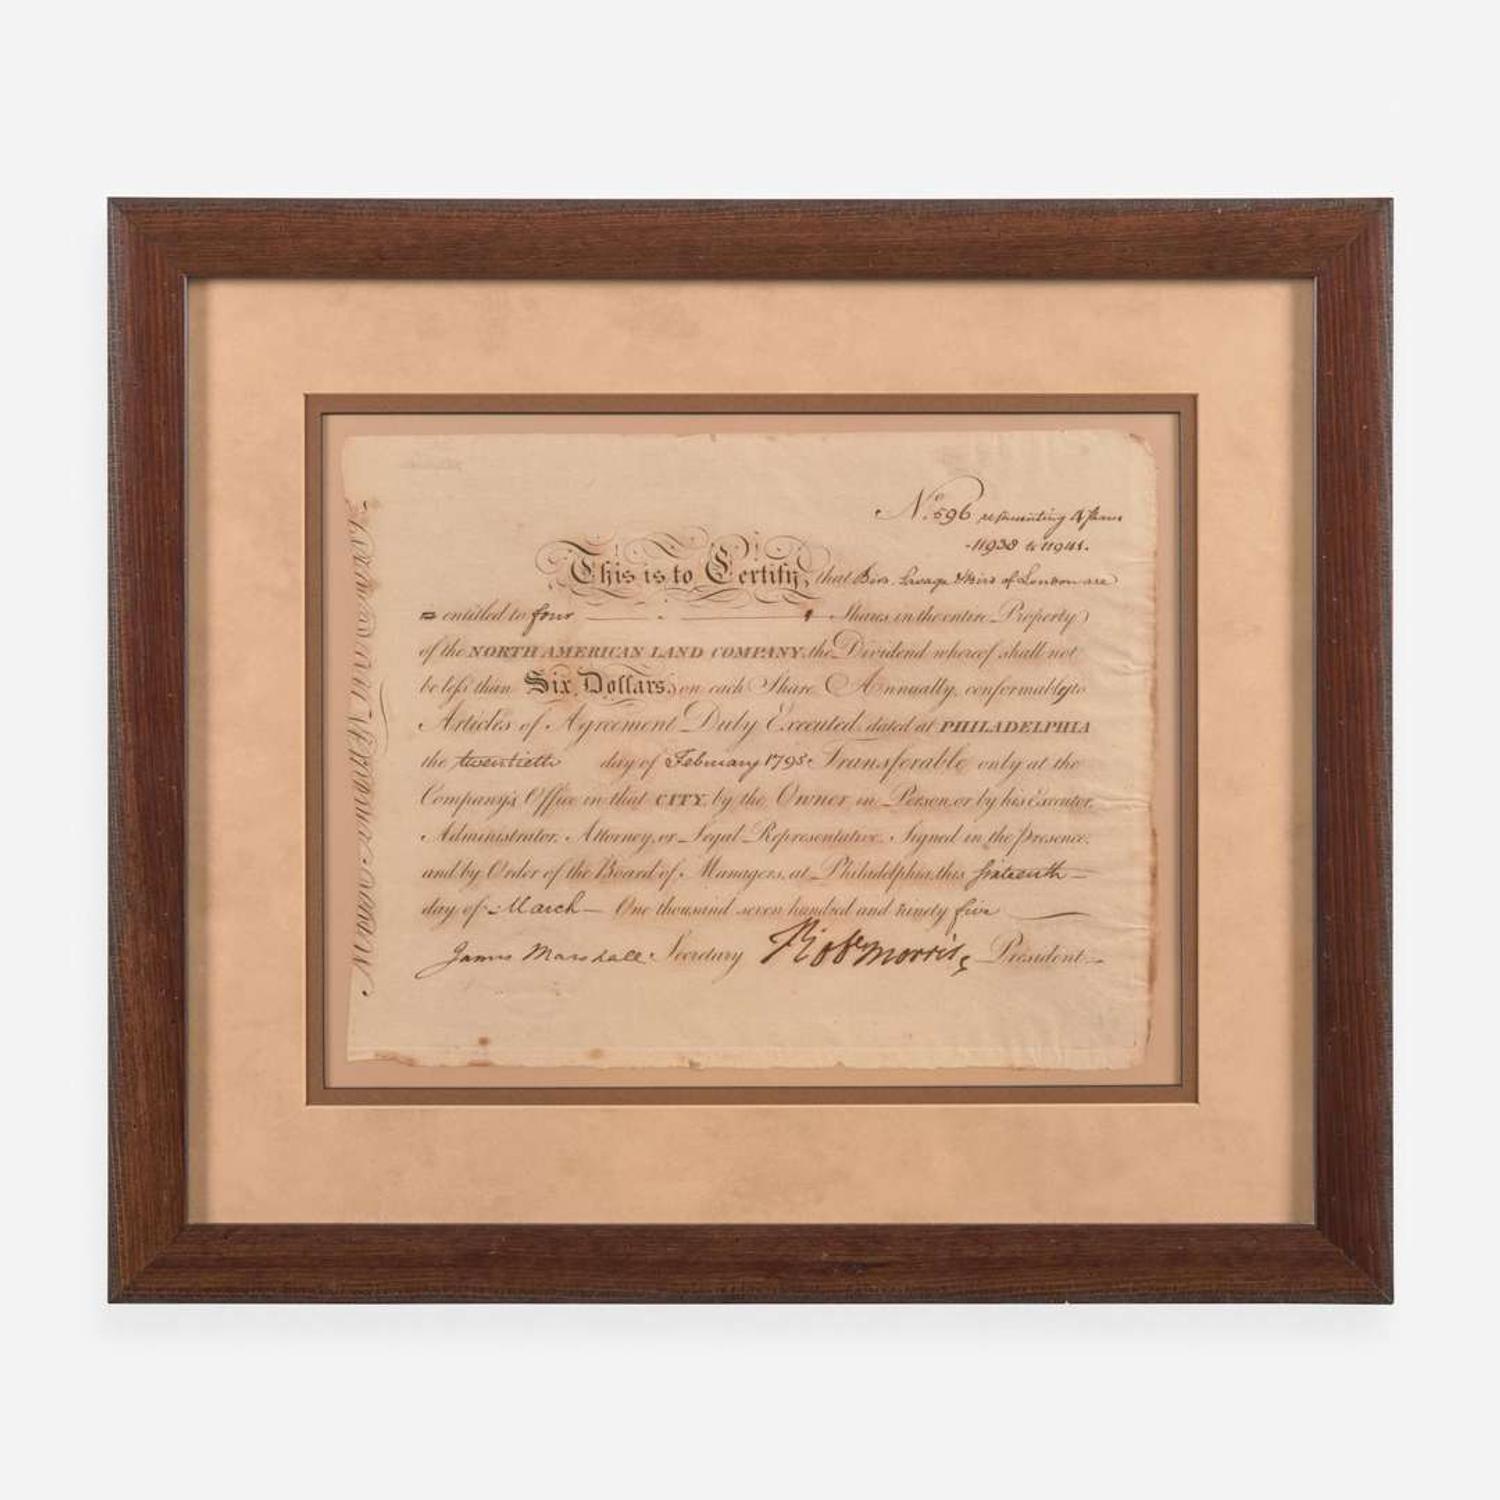 No. 596 representing 4 Shares
11938 to 11941.
This is to Certify, that Bird, Savage & Bird of London are
entitled to four Shares in the entire Property
of the NORTH AMERICAN LAND COMPANY, the Dividend whereof shall not
be less than Six Dollars, on each Share Annually, conformably to
Articles of Agreement Duly Executed, dated at PHILADELPHIA
the twentieth day of February 1795. Transferable only at the
Company's Office in that CITY, by the Owner in Person, or by his Executor,
Administrator, Attorney, or Legal Representative. Signed in the presence,
and by Order of the Board of Managers, at Philadelphia, this sixteenth
day of March One thousand seven hundred and ninety five
James Marshall Secretary Robt Morris President